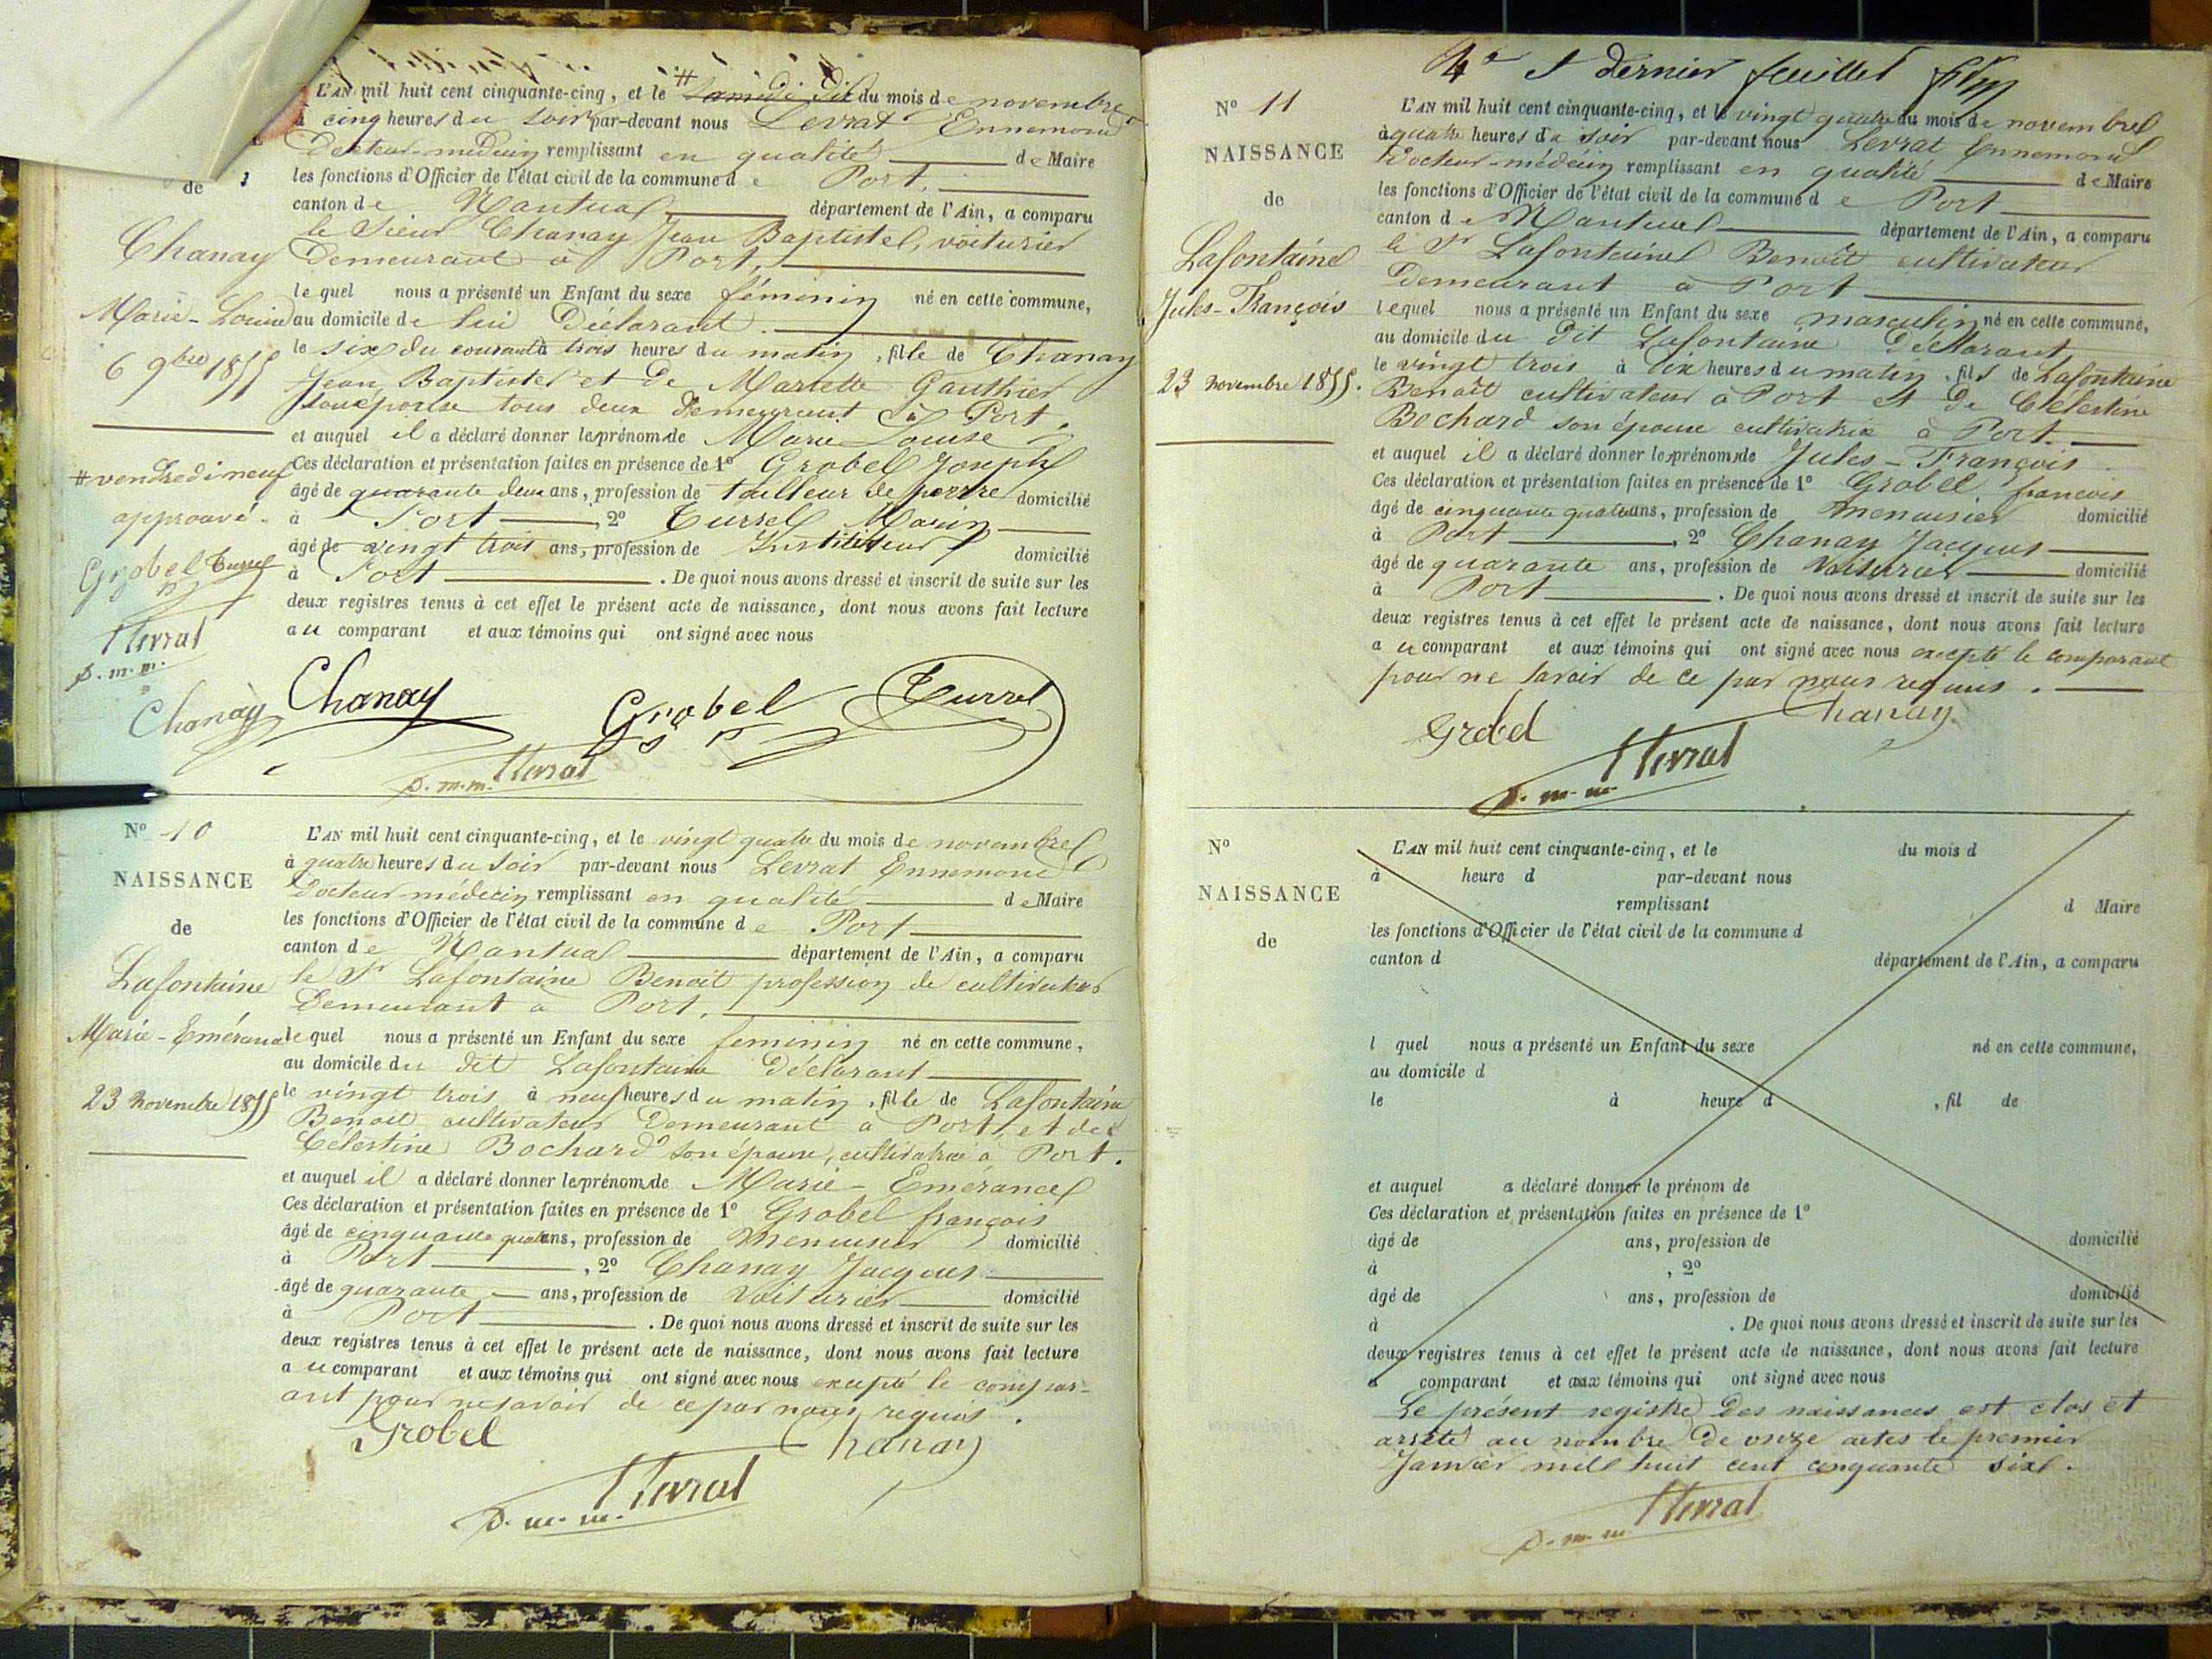 L'AN mil huit cent cinquante-cinq, et le # Samedi dix du mois de novembre
à cinq heures du soir par-devant nous Levrat Ennemond
Docteur-médecin remplissant en qualité de Maire
les fonctions d'Officier de l'état civil de la commune de Port,
canton de Nantua, département de l'Ain, a comparu
le Sieur Chanay Jean Baptiste, voiturier
Demeurant à Port,
lequel nous a présenté un Enfant du sexe féminin né en cette commune,
au domicile de lui Déclarant.
le six du courant à trois heures du matin, fille de Chanay
Jean Baptiste et de Mariette Gauthier
son épouse tous deux Demeurant à Port,
et auquel il a déclaré donner les prénoms de Marie Louise
Ces déclaration et présentation faites en présence de 1º Grobel Joseph
âgé de quarante deux ans, profession de tailleur de pierre domicilié
à Port, 2º Turrel Marin
âgé de vingt trois ans, profession de Instituteur domicilié
à Port. De quoi nous avons dressé et inscrit de suite sur les
deux registres tenus à cet effet le présent acte de naissance, dont nous avons fait lecture
au comparant et aux témoins qui ont signé avec nous
de
Chanay
Marie-Louise
6 9bre 1855
# vendredi neuf
approuvé.
Grobel Turrel
Levrat
d. m. m.
Chanay
Chanay Grobel Turrel
d. m. m. Levrat
Nº 10
NAISSANCE
de
Lafontaine
Marie-Emérance
23 Novembre 1855
L'AN mil huit cent cinquante-cinq, et le vingt quatre du mois de novembre
à quatre heures du soir par-devant nous Levrat Ennemond
Docteur-médecin remplissant en qualité de Maire
les fonctions d'Officier de l'état civil de la commune de Port
canton de Nantua département de l'Ain, a comparu
le Sr Lafontaine Benoit profession de cultivateur
Demeurant à Port,
lequel nous a présenté un Enfant du sexe féminin né en cette commune,
au domicile du dit Lafontaine Déclarant
le vingt trois à neuf heures du matin, fille de Lafontaine
Benoit cultivateur Demeurant à Port, et de
Célestine Bochard son épouse, cultivatrice à Port.
et auquel il a déclaré donner les prénoms de Marie-Emérance
Ces déclaration et présentation faites en présence de 1º Grobel françois
âgé de cinquante quatre ans, profession de Menuisier domicilié
à Port, 2º Chanay Jacques
âgé de quarante ans, profession de Voiturier domicilié
à Port. De quoi nous avons dressé et inscrit de suite sur les
deux registres tenus à cet effet le présent acte de naissance, dont nous avons fait lecture
au comparant et aux témoins qui ont signé avec nous excepté le compar-
ant pour ne savoir de ce par nous requis.
Grobel Chanay
d. m. m. Levrat
4e et dernier feuillet
Nº 11
NAISSANCE
de
Lafontaine
Jules-François
23 novembre 1855.
L'AN mil huit cent cinquante-cinq, et le vingt quatre du mois de novembre
à quatre heures du soir par-devant nous Levrat Ennemond
Docteur-médecin remplissant en qualité de Maire
les fonctions d'Officier de l'état civil de la commune de Port
canton de Nantua département de l'Ain, a comparu
le Sr Lafontaine Benoît cultivateur
Demeurant à Port
lequel nous a présenté un Enfant du sexe masculin né en cette commune,
au domicile du dit Lafontaine Déclarant
le vingt trois à dix heures du matin, fils de Lafontaine
Benoît cultivateur à Port et de Célestine
Bochard son épouse cultivatrice à Port.
et auquel il a déclaré donner les prénoms de Jules-François.
Ces déclaration et présentation faites en présence de 1º Grobel francois
âgé de cinquante quatre ans, profession de menuisier domicilié
à Port, 2º Chanay Jacques
âgé de quarante ans, profession de Voiturier domicilié
à Port. De quoi nous avons dressé et inscrit de suite sur les
deux registres tenus à cet effet le présent acte de naissance, dont nous avons fait lecture
au comparant et aux témoins qui ont signé avec nous excepté le comparant
pour ne savoir de ce par nous requis.
Grobel Chanay
d. m. m. Levrat
Nº
NAISSANCE
de
L'AN mil huit cent cinquante-cinq, et le du mois d
à heure d par-devant nous
remplissant d Maire
les fonctions d'Officier de l'état civil de la commune d
canton d département de l'Ain, a comparu
l quel nous a présenté un Enfant du sexe né en cette commune,
au domicile d
le à heure d , fil de
et auquel a déclaré donner le prénom de
Ces déclaration et présentation faites en présence de 1º
âgé de ans, profession de domicilié
à , 2º
âgé de ans, profession de domicilié
à . De quoi nous avons dressé et inscrit de suite sur les
deux registres tenus à cet effet le présent acte de naissance, dont nous avons fait lecture
a comparant et aux témoins qui ont signé avec nous
Le présent registre Des naissances est clos et
arrêté au nombre De onze actes le premier
Janvier mil huit cent cinquante six.
d. m. m. Levrat